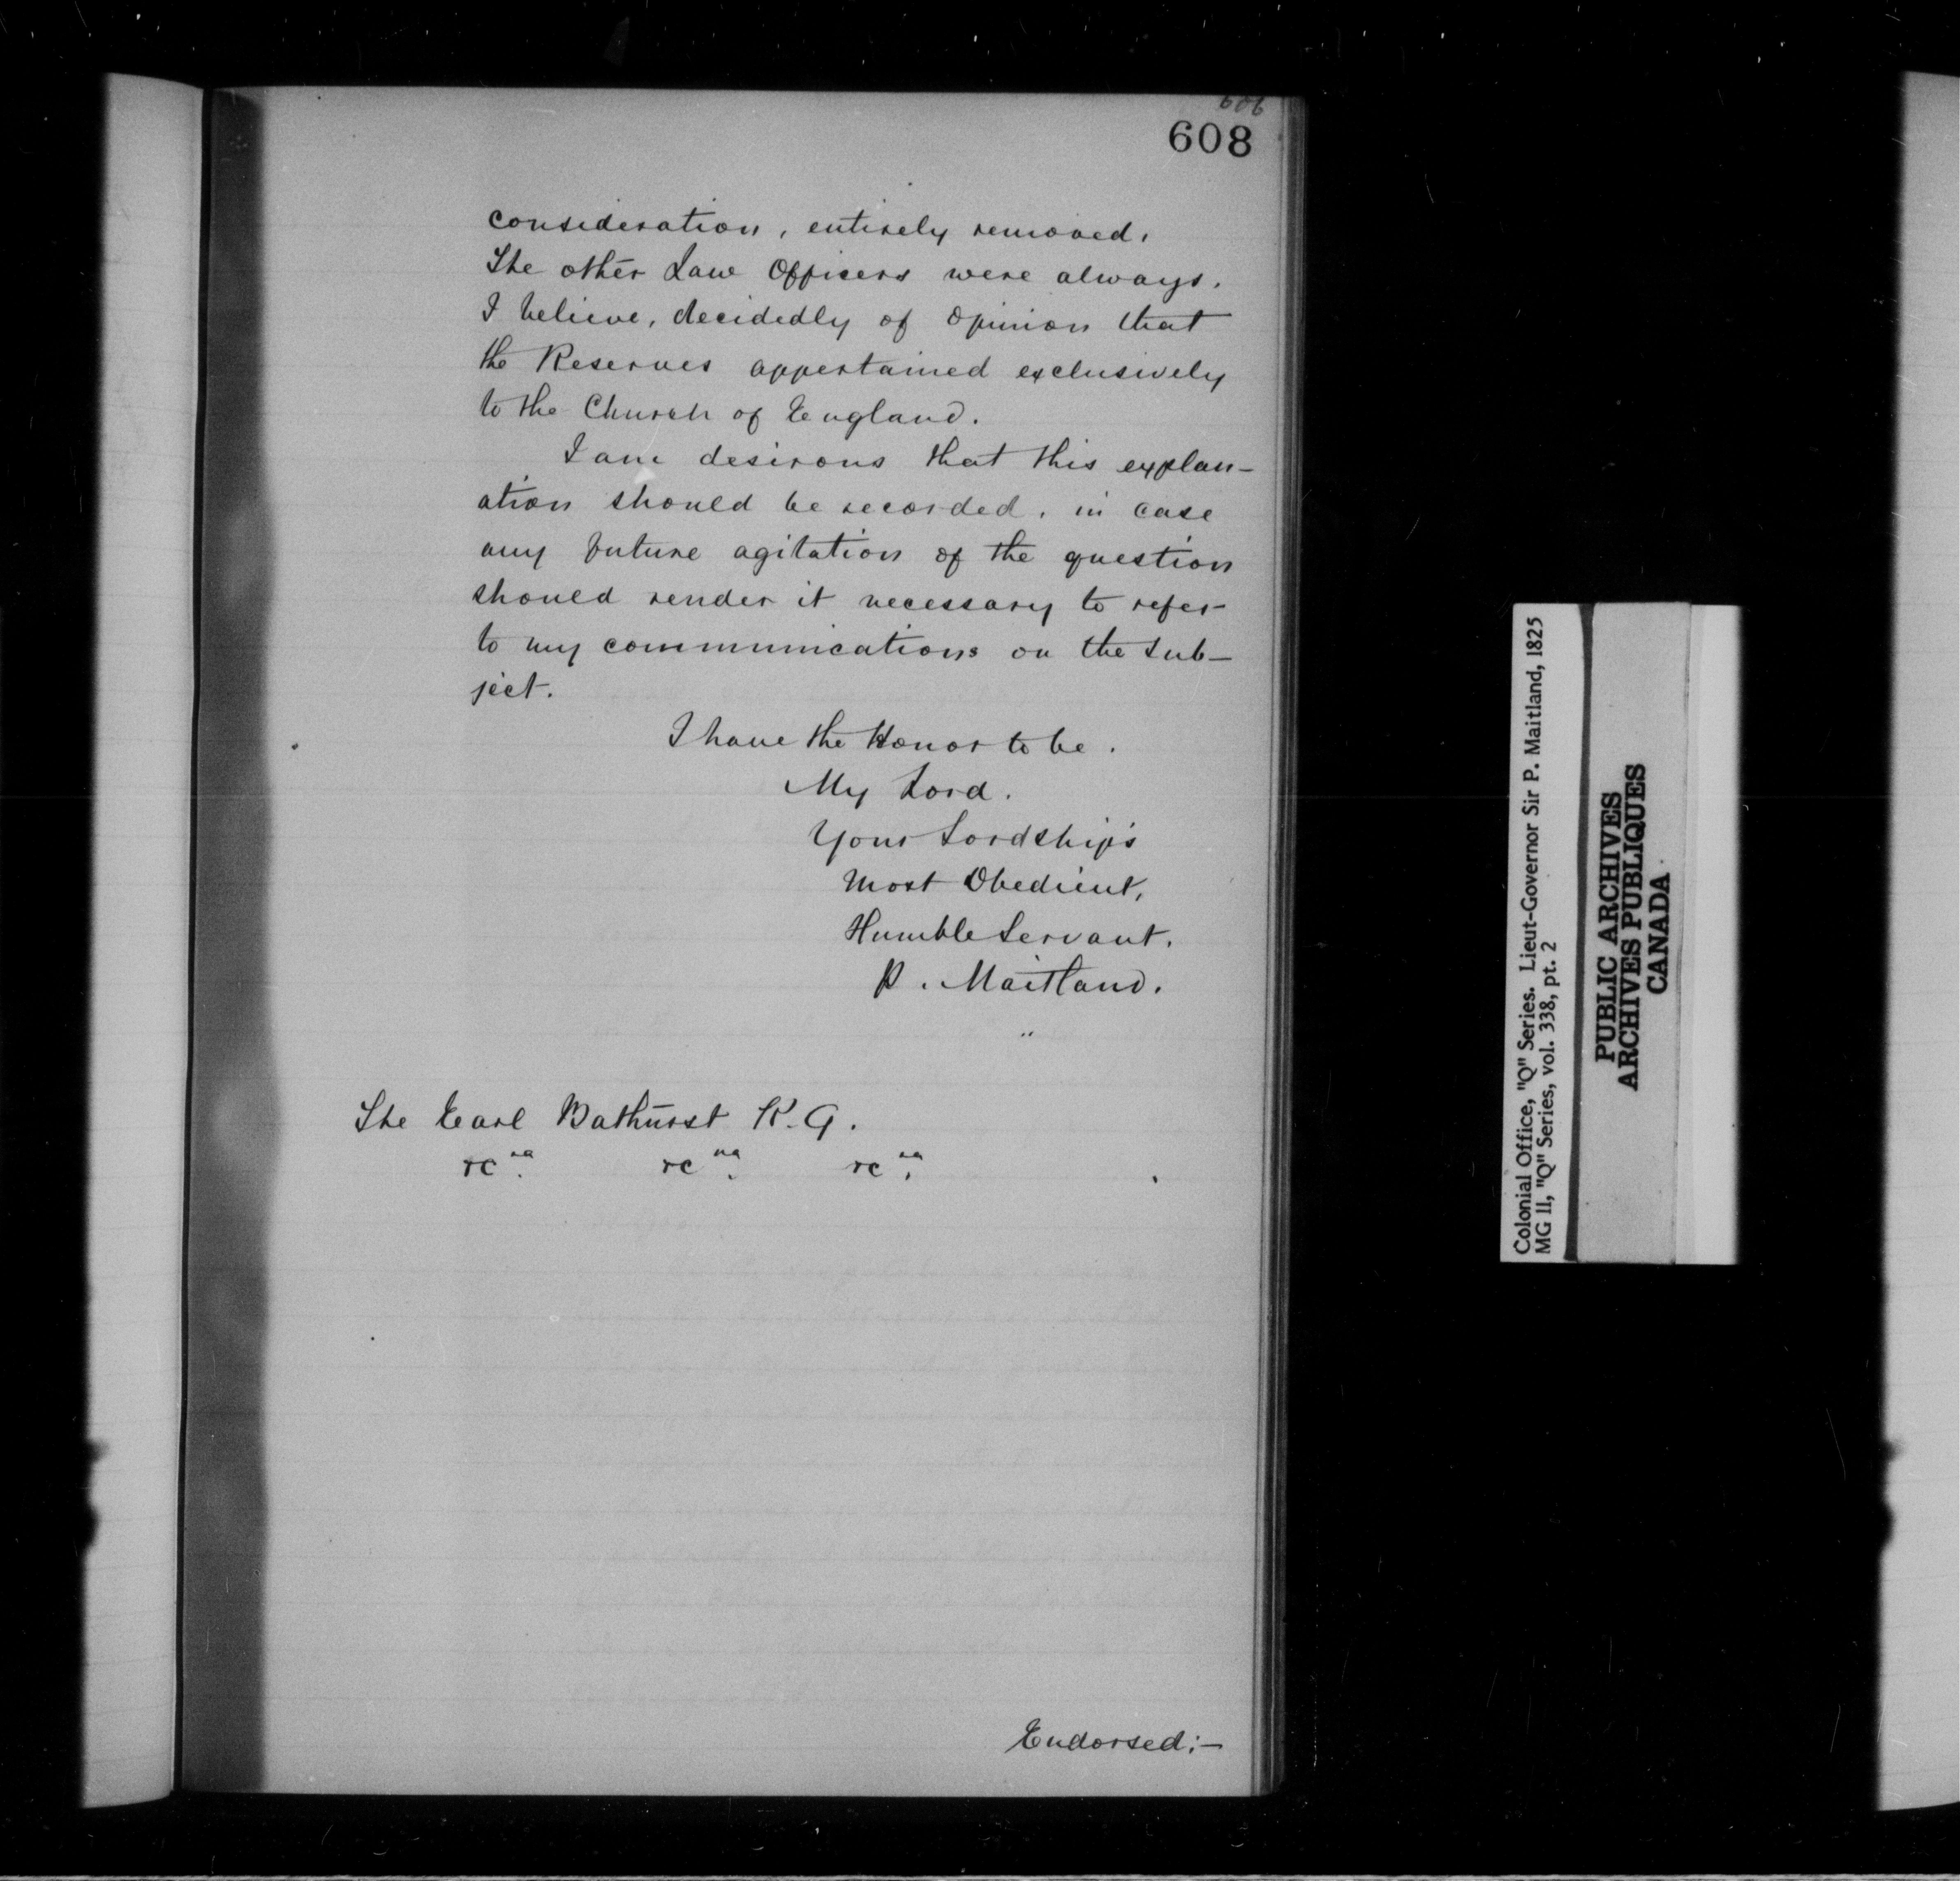 606
608
consideration, entirely removed.
The other Law Officers were always,
I believe, decidedly of opinion that
the Reserves appertained exclusively
to the Church of England.
I am desirous that this explan-
ation should be recorded, in case
any future agitation of the question
should render it necessary to refer
to my communications on the sub-
ject.
I have the Honor to be.
My Lord.
Your Lordship's
Most Obedient,
Humble Servant.
P. Maitland.
The Earl Bathurst K.G.
Endorsed:-
Colonial Office, "Q" Series. Lieut-Governor Sir P. Maitland, 1825
MG 11, "Q" Series, vol. 338, pt. 2
PUBLIC ARCHIVES
ARCHIVES PUBLIQUES
CANADA